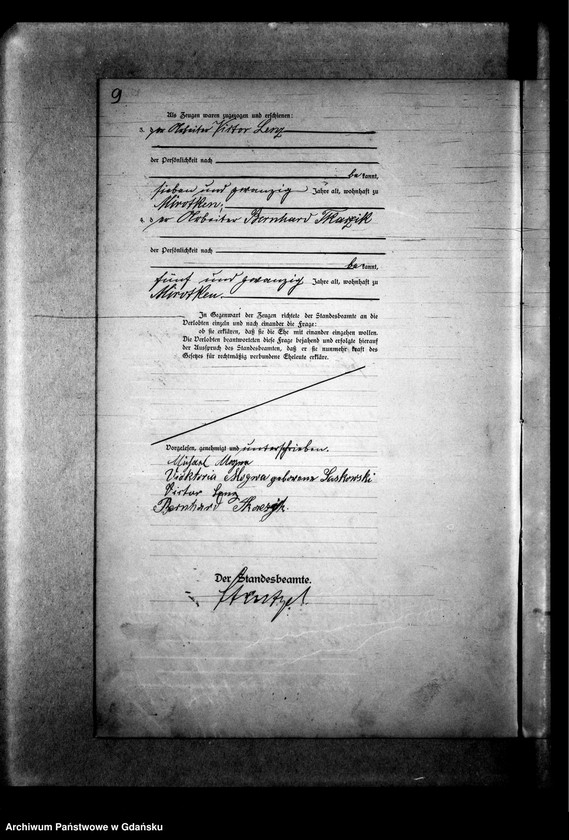 9
Als Zeugen waren zugezogen und erschienen:
3. der Arbeiter Viktor Lenz
der Persönlichkeit nach
be kannt,
sieben und zwanzig Jahre alt, wohnhaft zu
Mirotken.
4. d er Arbeiter Bernhard Tkaczik
der Persönlichkeit nach
be kannt,
fünf und zwanzig Jahre alt, wohnhaft zu
Mirotken.
In Gegenwart der Zeugen richtete der Standesbeamte an die
Verlobten einzeln und nach einander die Frage:
ob sie erklären, daß sie die Ehe mit einander eingehen wollen.
Die Verlobten beantworteten diese Frage bejahend und erfolgte hierauf
der Ausspruch des Standesbeamten, daß er sie nunmehr kraft des
Gesetzes für rechtmäßig verbundene Eheleute erkläre.
Vorgelesen, genehmigt und unterschrieben.
Michael Mogwa
Vicktoria Mogwa geborene Laskowski
Victor Lenz
Bernhard
Der Standesbeamte.
Archiwum Państwowe w Gdańsku